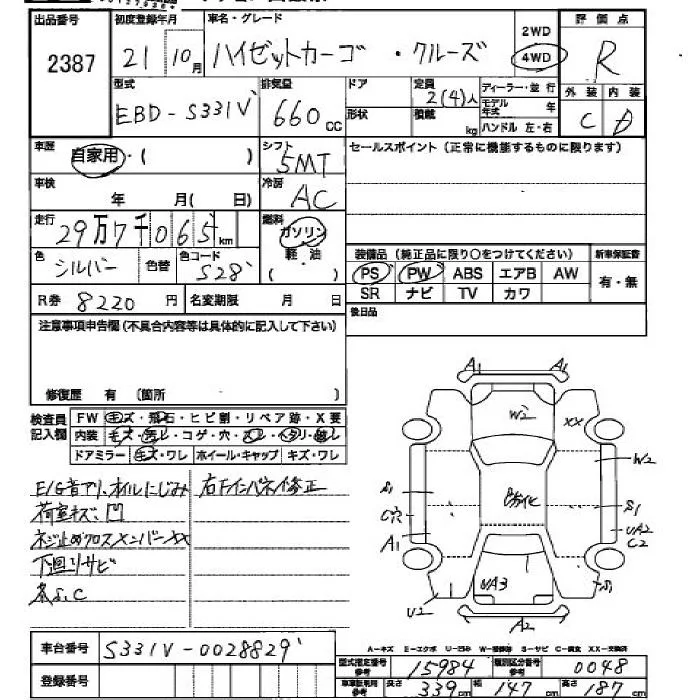 出品番号 初度登録年月 車名・グレード 2WD 評価点
2387 21 10月 ハイゼットカーゴ ・クルーズ 4WD R
型式 排気量 ドア 定員 ディーラー・並行 外装 内装
EBD-S331V 660cc 形状 2(4)人 モデル年式 年 C D
積載 kg ハンドル 左・右
車歴 自家用・( ) シフト 5MT セールスポイント(正常に機能するものに限ります)
車検 年 月( 日) 冷房 AC
走行 29万7千065km 燃料 ガソリン 軽油
装備品(純正品に限り○をつけてください) 新車保証書
色 シルバー 色替 色コード S28
PS PW ABS エアB AW 有・無
SR ナビ TV カワ
R券 8220円 名変期限 月 日
後日品
注意事項申告欄(不具合内容等は具体的に記入して下さい)
修復歴 有 〔箇所 〕
検査員記入欄 FW キズ・飛石・ヒビ割・リペア跡・X要
内装 キズ・汚レ・コゲ・穴・スレ・ヘタリ・破レ
ドアミラー キズ・ワレ ホイール・キャップ キズ・ワレ
E/G音アリ、オイルにじみ 右Fインパネ修正
荷室キズ、凹
ネジ止めクロスメンバーXX
下廻リサビ
各S.C
A1 A1
W2 XX
W2
S1 S1
C穴 UA2
A1 C2
UA3 S1
U2 A2
A-キズ E-エクボ U-凹み W-補修跡 S-サビ C-腐食 XX-交換済
車台番号 S331V-0028829
登録番号
型式指定番号参考 15984 類別区分番号参考 0048
車車証明用参考 長さ 339cm 幅 147cm 高さ 187cm